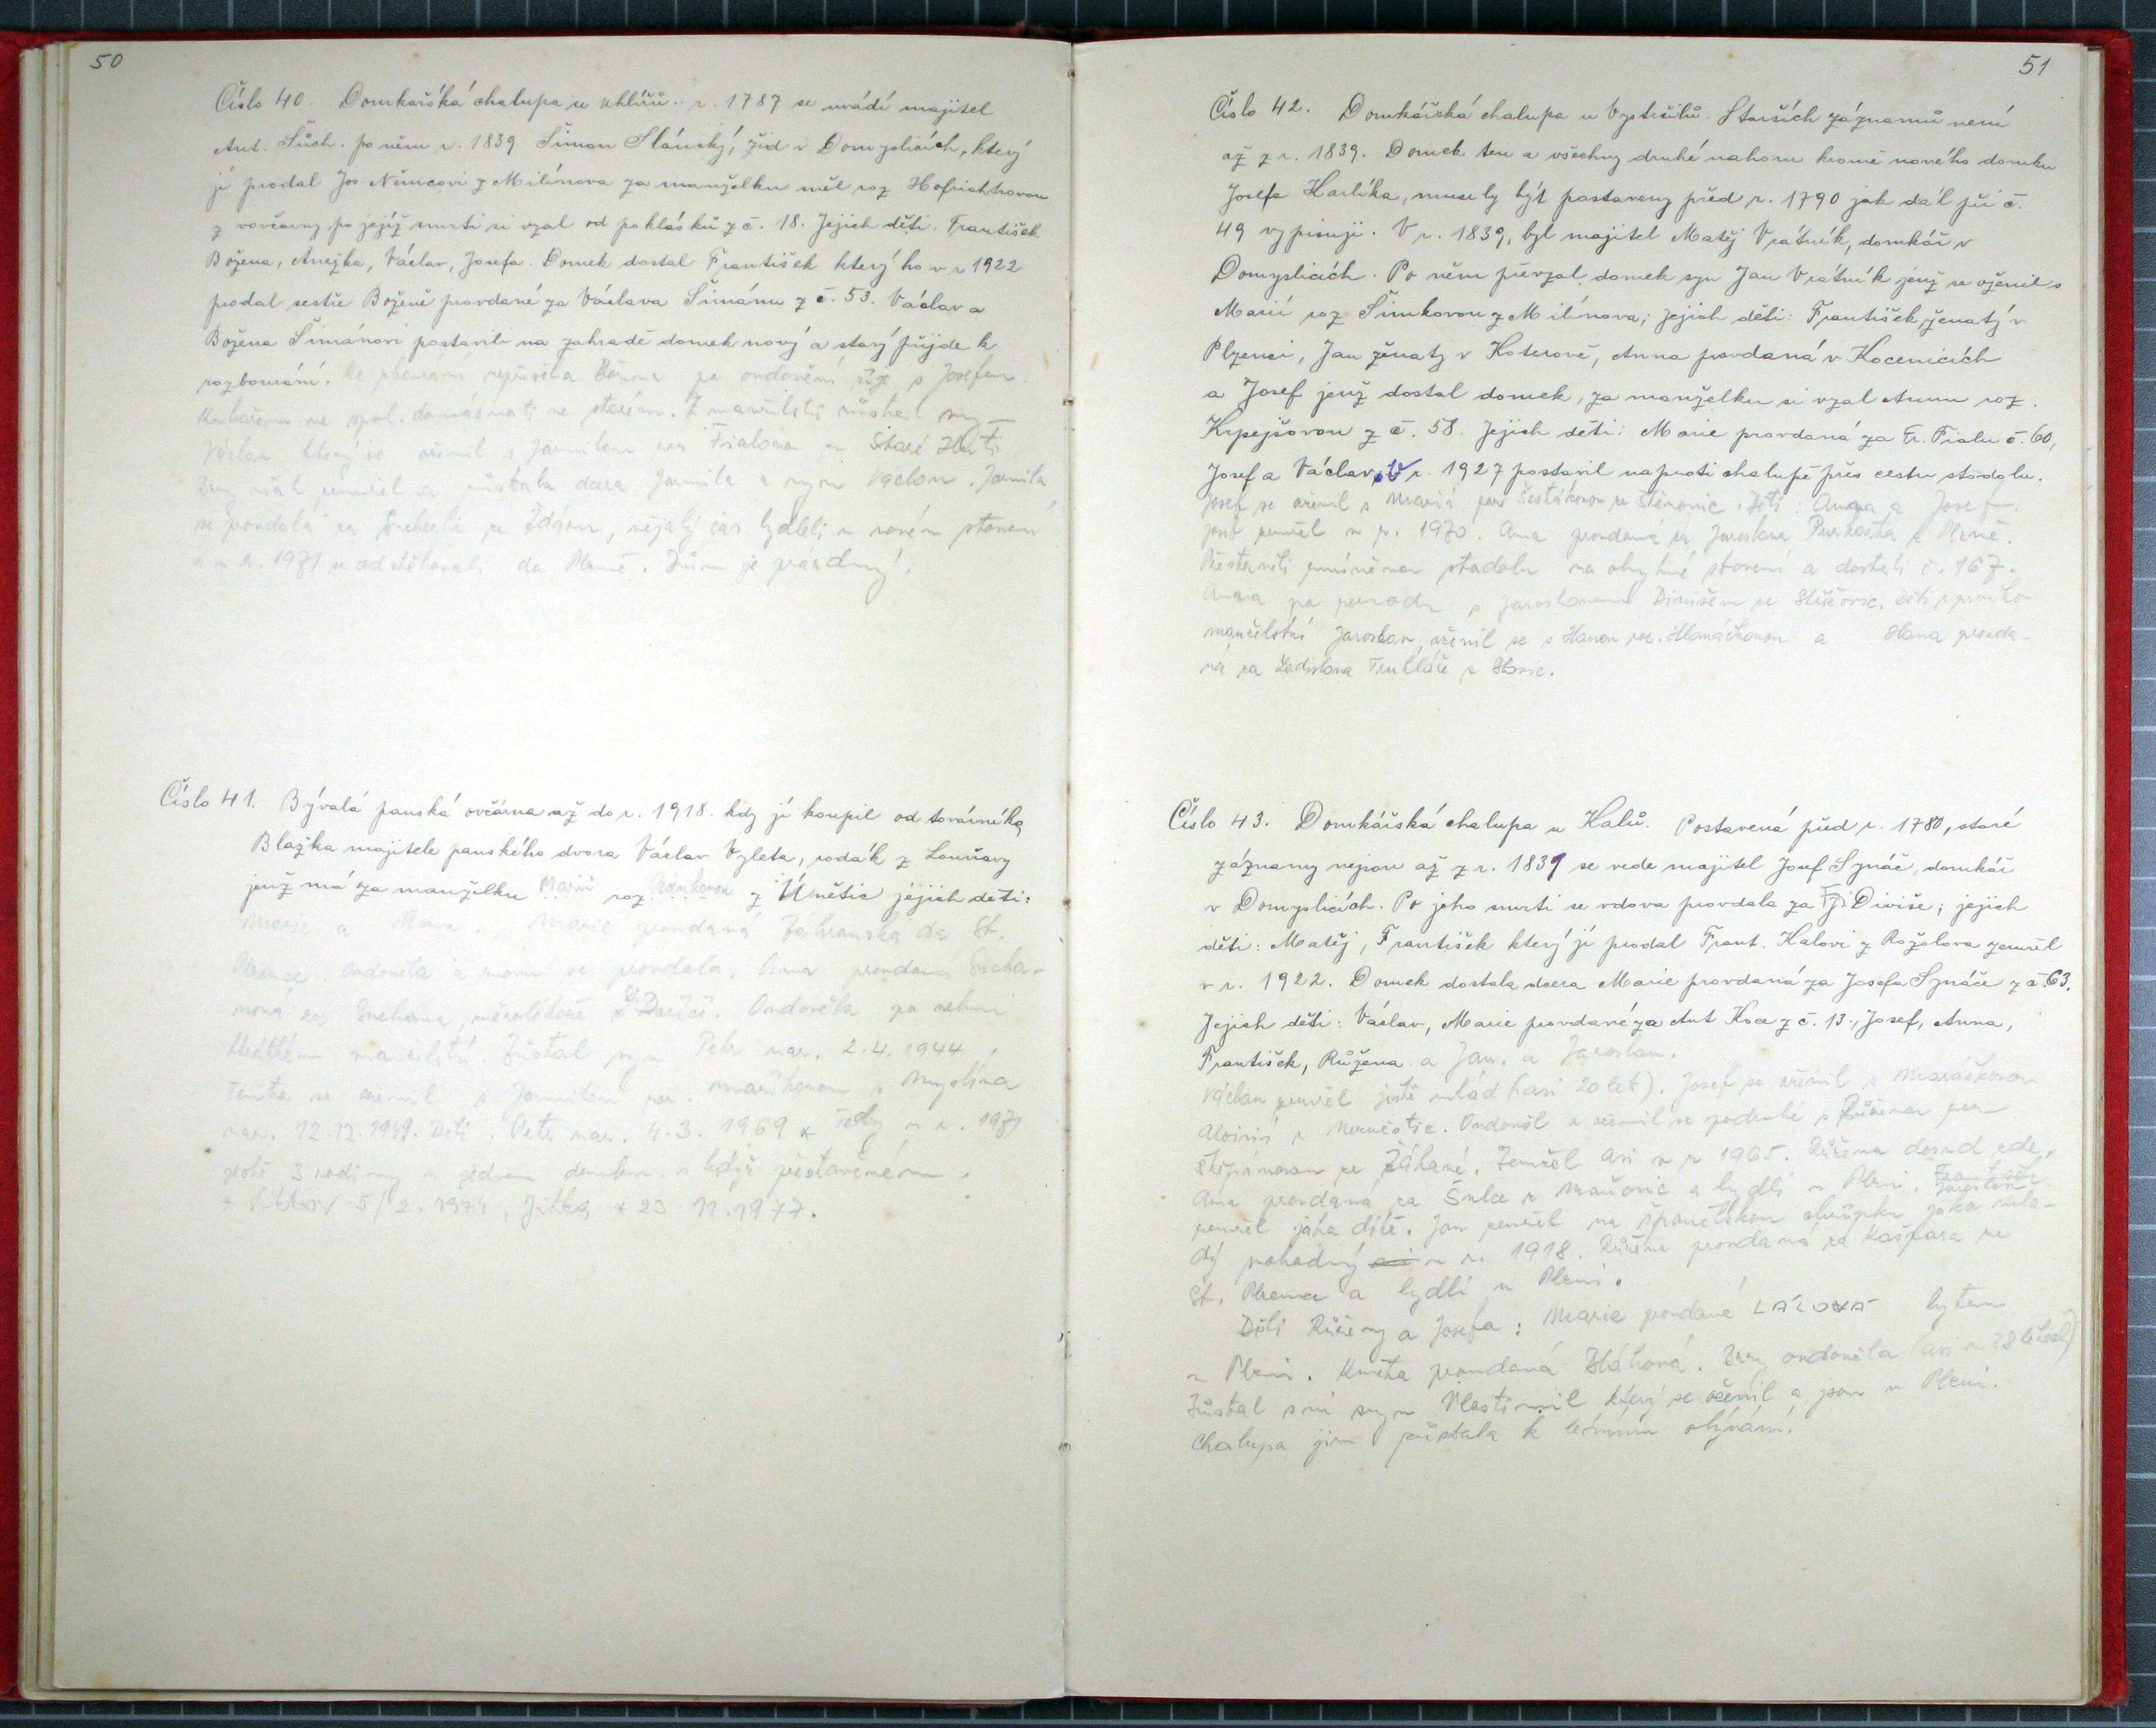 50
Číslo 40. Domkařská chalupa u Uhlířů. r. 1787 se uvádí majitel
Ant. Šůch. po něm r. 1839 Šimon Slánský, žid v Domyslicích, který
ji prodal Jos Němcovi z Milínova za manželku měl roz Hofrichtrovou
z vovčárny, po jejíž smrti si vzal od pohlásků z č. 18. Jejich děti: František
Božena, Anežka, Václav, Josefa. Domek dostal František který ho v r 1922
prodal sestře Boženě provdané za Václava Šimánu z č. 53. Václav a
Božena Šimánovi postavili na zahradě domek nový a starý přijde k
rozbourání. Ke zbourání Božena po ovdovění žije s Josefem
ve spol. domácnosti ve starém. Z manželství syn
Václav který se oženil s Jarmilou roz Fialovou ze Staré Hutě
Brzy však zemřel a zůstala dcera Jarmila a syn Václav. Jarmila
se provdala za ze Ždáru, nějaký čas bydleli v novém stavení
a v r. 1971 se odstěhovali do Plzně. Dům je prázdný.
Číslo 41. Bývalá panská ovčárna až do r. 1918. kdy jí koupil od továrníka
Blažka majitele panského dvora Václav Vyleta, rodák z Louňavy
jenž má za manželku Marii roz z Únětic jejich děti:
Marie a Anna. Marie provdaná do St.
Plzence. Ovdověla a znovu se provdala. Anna provdaná
za Ovdověla po velmi
krátkém manželství. Zůstal syn Petr nar. 2.4. 1944.
Tento se oženil s Jarmilou roz. z Myslína
nar. 12.12.1949. Děti: Petr nar. 4.3. 1969 Tedy v r. 1971
ještě 3 rodiny v jednom domku i když přestavěném.
* Václav 5/2. 1974, Jitka * 23 11. 1977.
51
Číslo 42. Domkářská chalupa u Vystrčilů. Starších záznamů není
až z r. 1839. Domek ten a všechny druhé nahoru kromě nového domku
Josefa Karlíka, musely být postaveny před r. 1790 jak dál při č.
49 vypisuji. V r. 1839, byl majitel Matěj Vrátník, domkář v
Domyslicích. Po něm převzal domek syn Jan Vrátník jenž se oženil s
Marií roz Šimkovou z Milínova; jejich děti: František, ženatý v
Plzenci, Jan ženatý v Koterově, Anna provdaná v Kocenicích
a Josef jenž dostal domek, za manželku si vzal Annu roz.
Krpejšovou z č. 58. Jejich děti: Marie provdaná za Fr. Fialu č. 60,
Josef a Václav, V r. 1927 postavil naproti chalupě přes cestu stodolu.
Josef se oženil s Marií roz Šestákovou ze Štěnovic. Děti: Anna a Josef.
Josef zemřel v r. 1970. Anna provdaná za Jaroslava z Plzně.
Přestavěli zmíněnou stodolu na obytné stavení a dostali č. 167.
Anna po rozvodu s Jaroslavem Divišem ze Děti z prvního
manželství Jaroslav, oženil se s Hanou roz. Hlaváčkovou a Hana provda-
ná za Ladislava Truhláře z Bkovic.
Číslo 43. Domkářská chalupa u Kalů. Postavená před r. 1780, staré
záznamy nejsou až z r. 1839 se vede majitel Josef Synáč, domkář
v Domyslicích. Po jeho smrti se vdova provdala za Fr. Diviše; jejich
děti: Matěj, František který jí prodal Frant. Kalovi z Rožalova zemřel
v r. 1922. Domek dostala dcera Marie provdaná za Josefa Synáče z č. 63.
Jejich děti: Václav, Marie provdané za Ant Koce z č. 13., Josef, Anna,
František, Růžena a Jan. a Jaroslav.
Václav zemřel ještě mlád (asi 20 let). Josef se oženil s Maraškovou
Aloisií z Nezvěstic. Ovdověl a oženil se podruhé s Růženou roz
Štěpánovou ze Žákavé. Zemřel asi v r 1965. Růžena dosud zde.
Anna provdaná za Šulce z a bydlí v Plzni. Jaroslav
zemřel jako dítě. Jan zemřel na španělskou chřipku jako mla-
dý svobodný v r. 1918. Růžena provdaná za Kašpara ze
St. Plzence a bydlí v Plzni.
Děti Růženy a Josefa: Marie provdaná LÁLOVÁ bytem
v Plzni. Květa provdaná Bláhová. Brzy ovdověla (asi v 28 letech)
Zůstal s ní syn Vlastimil který se oženil a jsou v Plzni.
Chalupa jim zůstala k letnímu obývání.